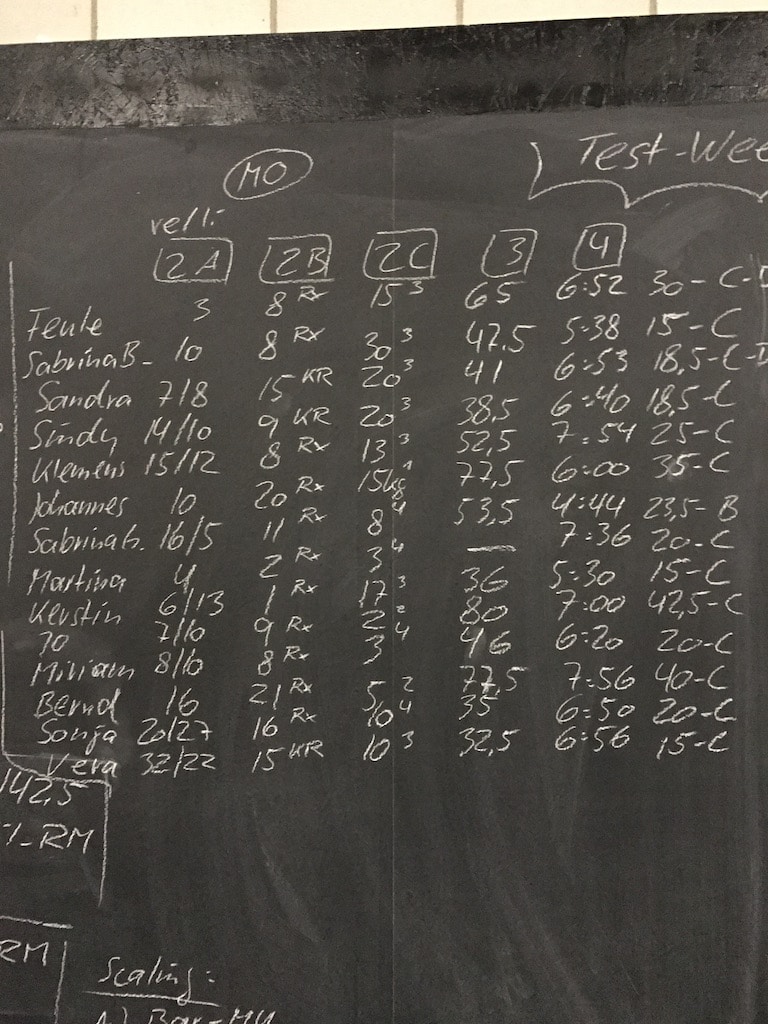 MO
Test-Wee
re/li
2A 2B 2C 3 4
Feule 3 8 Rx 15 3 65 6:52 30-C-D
Sabrina B. 10 8 Rx 30 3 47,5 5:38 15-C
Sandra 7/8 15 KR 20 3 41 6:53 18,5-C-D
Sindy 14/10 9 KR 20 3 38,5 6:40 18,5-C
Klemens 15/12 8 Rx 13 3 52,5 7:54 25-C
Johannes 10 20 Rx 15kg 1 77,5 6:00 35-C
Sabrina G. 16/5 11 Rx 8 4 53,5 4:44 23,5-B
Martina 4 2 Rx 3 4 — 7:36 20-C
Kerstin 6/13 1 Rx 17 3 36 5:30 15-C
Jo 7/10 9 Rx 2 2 80 7:00 42,5-C
Miriam 8/10 8 Rx 3 4 46 6:20 20-C
Bernd 16 21 Rx 5 2 77,5 7:56 40-C
Sonja 20/27 16 Rx 10 4 35 6:50 20-C
Vera 32/22 15 KR 10 3 32,5 6:56 15-C
142,5
%-RM
RM
Scaling:
A) Bar-MU